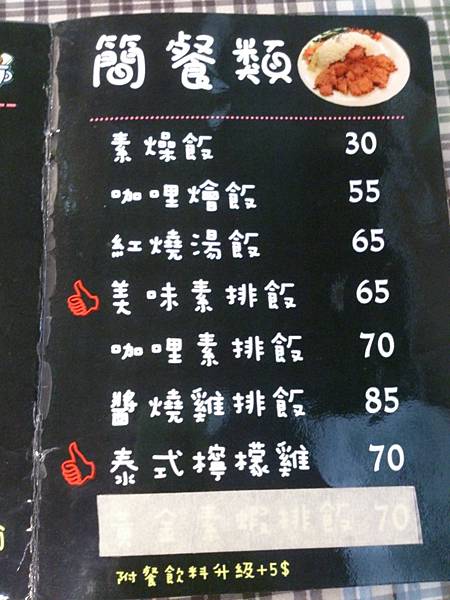 簡餐類
素燥飯 30
咖哩燴飯 55
紅燒湯飯 65
美味素排飯 65
咖哩素排飯 70
醬燒雞排飯 85
泰式檸檬雞 70
黃金素蝦排飯 70
附餐飲料升級+5$